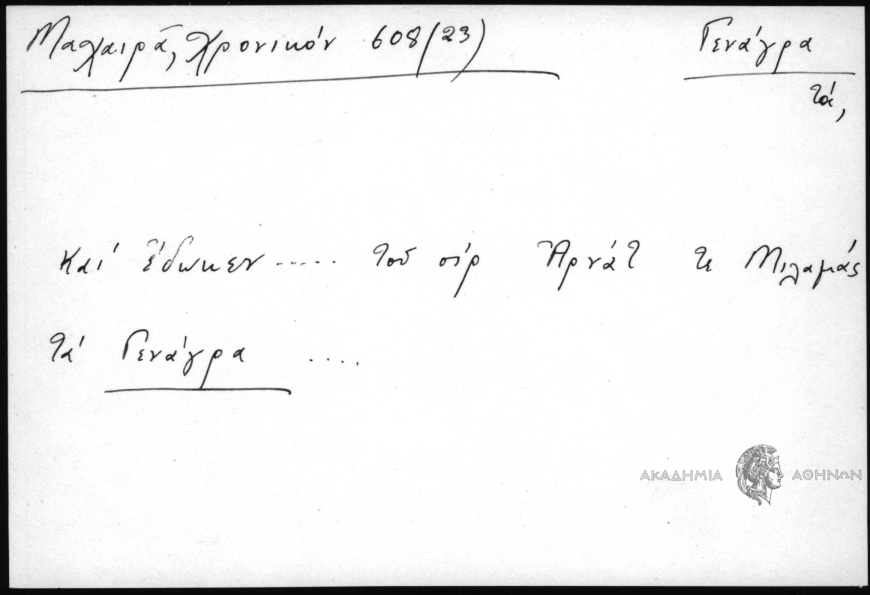 Μαχαιρᾶ, Χρονικόν 608/23)
Γενάγρα
τά,
καί ἔδωκεν ..... τοῦ σίρ Ἀρνάτ τε Μιλαμάς
τά Γενάγρα ....
ΑΚΑΔΗΜΙΑ ΑΘΗΝΩΝ